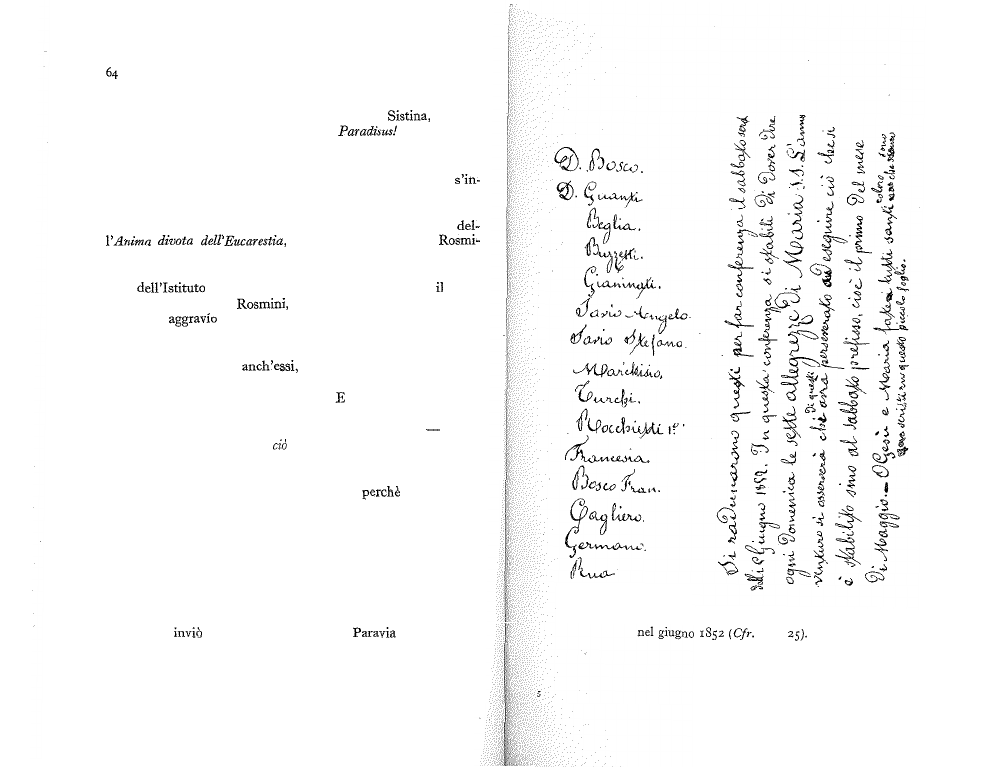 64
Sistina,
Paradisus!
s'in-
del-
l'Anima divota dell'Eucarestia, Rosmi-
dell'Istituto il
Rosmini,
aggravio
anch'essi,
E
—
ciò
perchè
inviò Paravia
D. Bosco.
D. Guanti
Beglia.
Buzzetti.
Gianinati.
Savio Angelo.
Savio Stefano.
Marchisio,
Turchi.
Rocchietti 1º.
Francesia.
Bosco Fran.
Cagliero.
Germano.
Rua
Si radunarono questi per far conferenza il sabbato sera
delli 5 Giugno 1852. In questa conferenza si stabilì di dover dire
ogni Domenica le sette allegrezze di Maria S.S. L'anno
venturo si osserverà chi di questi avrà perseverato ad eseguire ciò che si
è stabilito sino al sabbato prefisso, cioè il primo del mese
di Maggio. — O Gesù e Maria fate tutti santi coloro che sono
scritti in questo piccolo foglio.
nel giugno 1852 (Cfr. 25).
5